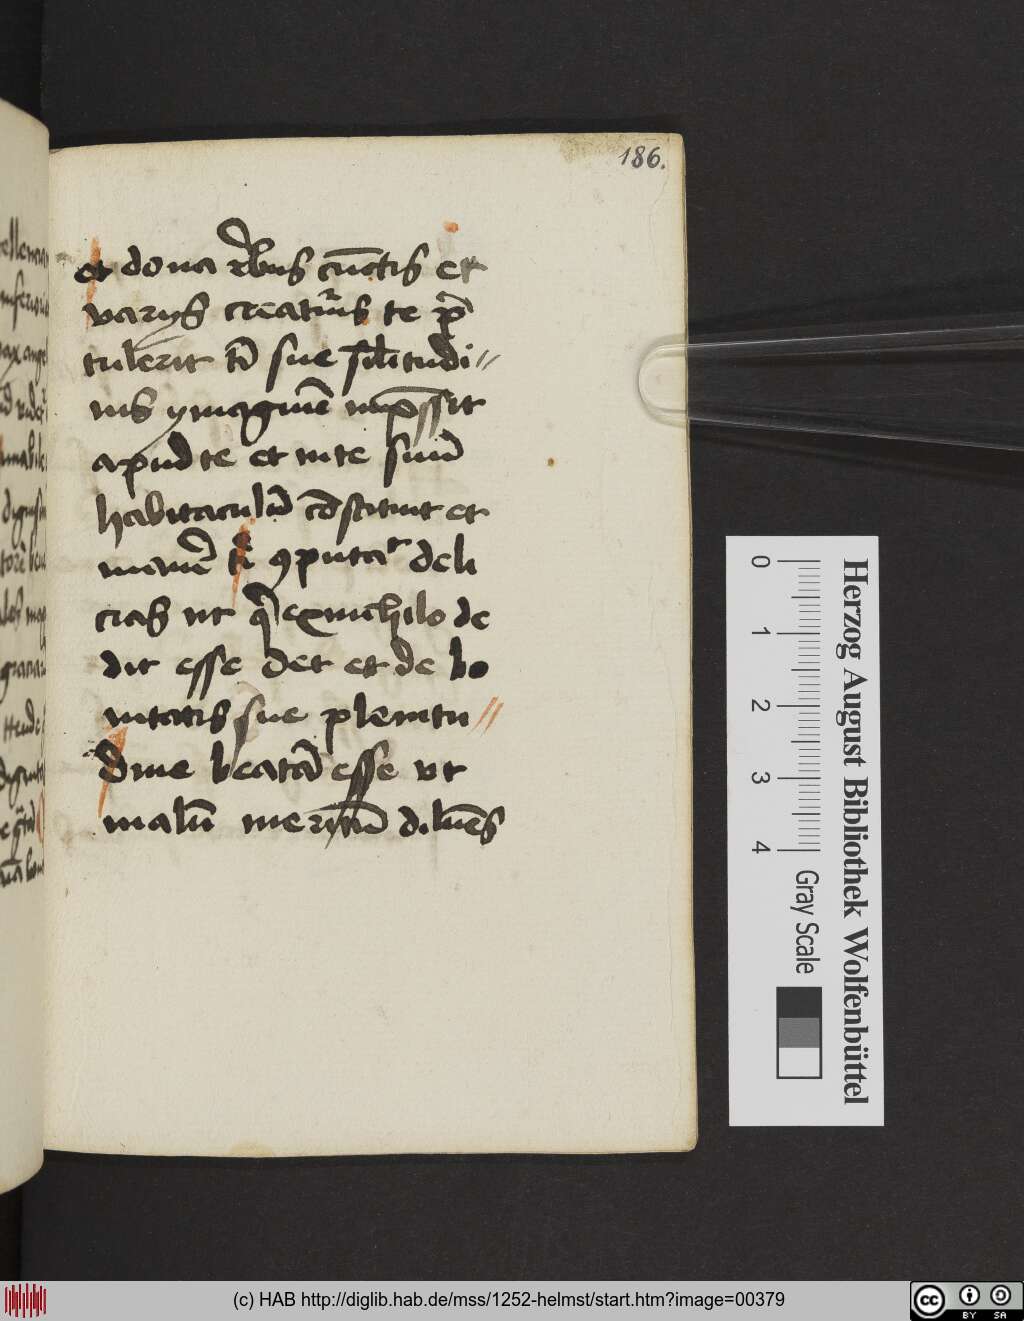 186.
et dona rebus cūctis et
varijs creaturis te p̄
tulerit tī sue silitudi
nis ymaginē impssit
apud te et in te suū
habitaculū cōstituit et
manē tī 9putat deli
cias ut qī ex nichilo de
dit esse det et de bo
nitatis sue plenitu
dine beatā esse ut
malū meritū diluēs
Herzog August Bibliothek Wolfenbüttel
0 1 2 3 4
Gray Scale
(c) HAB http://diglib.hab.de/mss/1252-helmst/start.htm?image=00379
cc BY SA